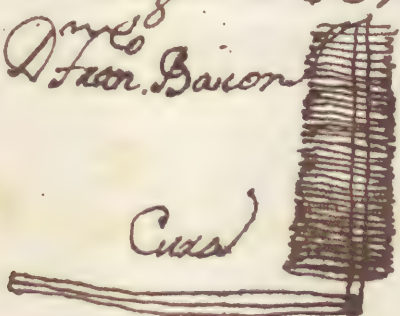 D Fran. Baron
Cura